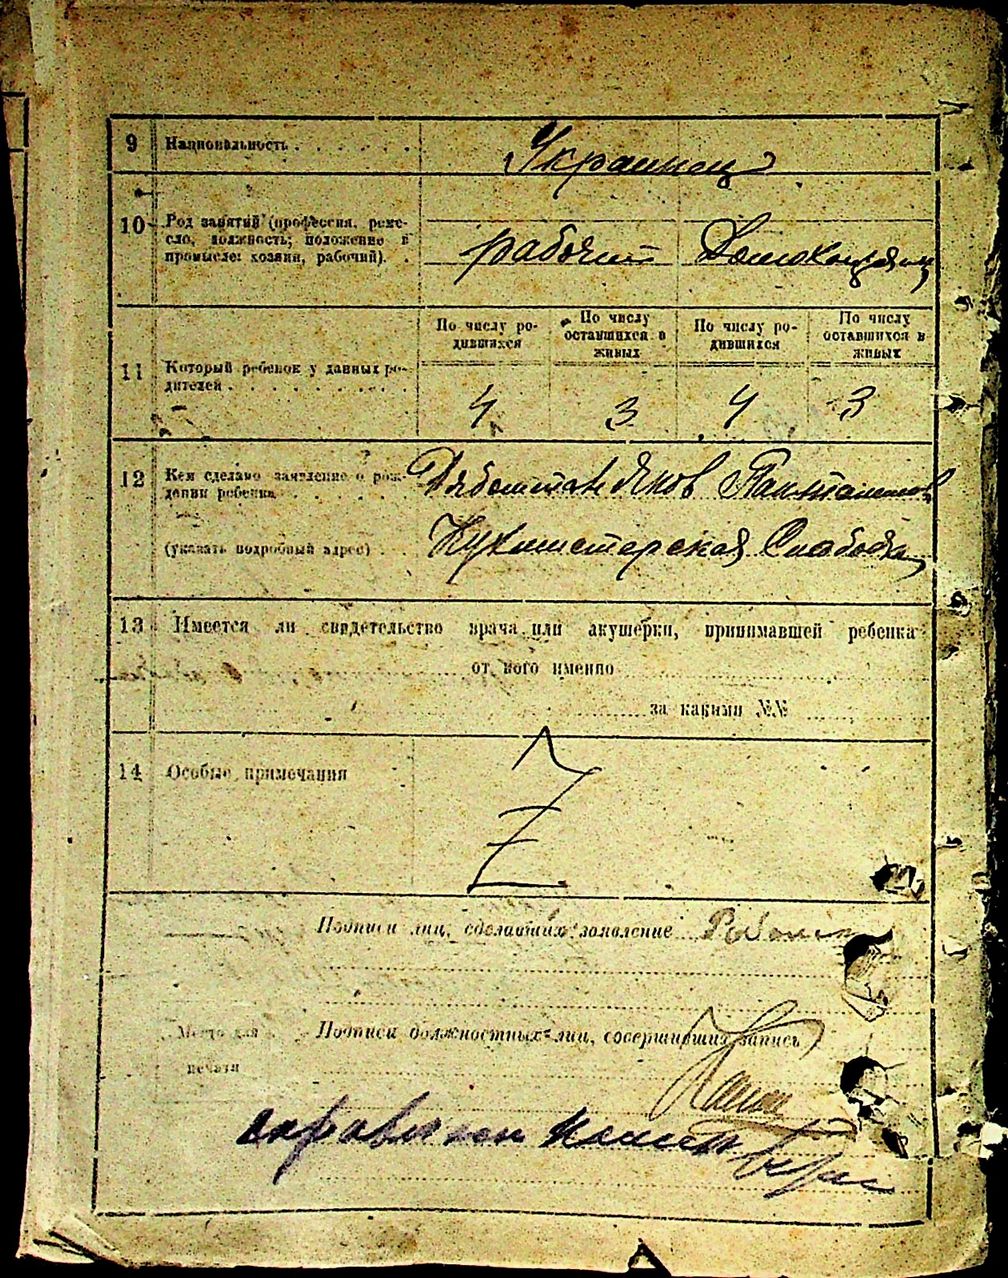 9 Национальность . . . . . . Украинец
10 Род занятий (профессия, реме-
сло, должность; положение в
промысле: хозяин, рабочий). . рабочий Домохозяйка
По числу ро-
дившихся По числу
оставшихся в
живых По числу ро-
дившихся По числу
оставшихся в
живых
11 Который ребенок у данных ро-
дителей . . . . . . . . . . 4 3 4 3
12 Кем сделано заявление о рож-
дении ребенка . . . . . Яков
(указать подробный адрес) . . . Кухмистерская Слабода
13 Имеется ли свидетельство врача или акушерки, принимавшей ребенка
от кого именно
за какими №№
14 Особые примечания Z
Подписи лиц, сделавших заявление
Место для
печати
Подписи должностных лиц, совершивших запись